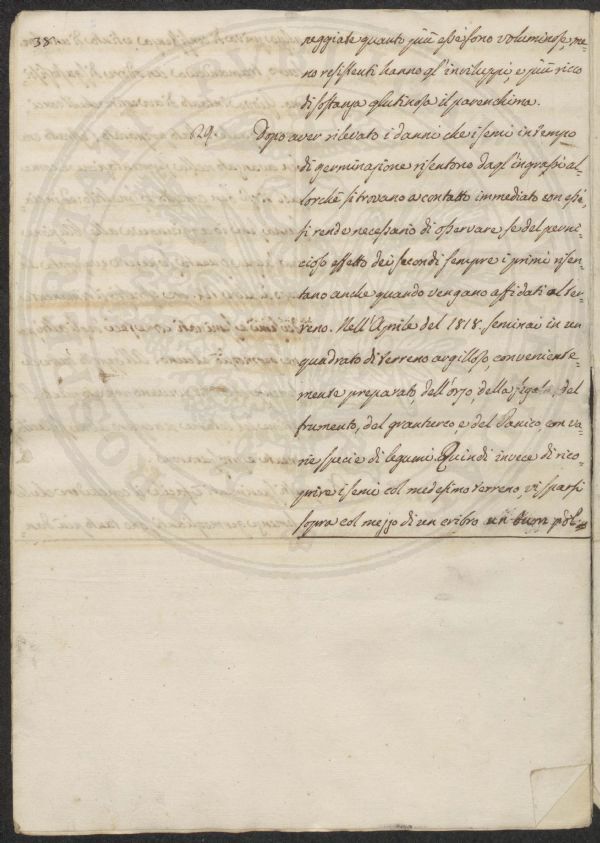 38.
neggiate quanto più esse sono voluminose, me=
no resistenti hanno gl'inviluppi, e più ricco
di sostanza glutinosa il parenchima.
29. Dopo aver rilevato i danni che i semi in tempo
di germinazione risentono dagl'ingrassi al=
lorchè si trovano a contatto immediato con essi,
si rende necessario di osservare se del perni=
cioso effetto dei secondi sempre i primi risen=
tano anche quando vengano affidati al ter=
reno. Nell'Aprile del 1818. seminai in un
quadrato di terreno argilloso, conveniente=
mente preparato, dell'orzo, della segala, del
frumento, del granturco, e del Panico, con va=
rie specie di legumi. Quindi invece di rico=
prire i semi col medesimo terreno, vi sparsi
sopra col mezzo di un cribro un buon